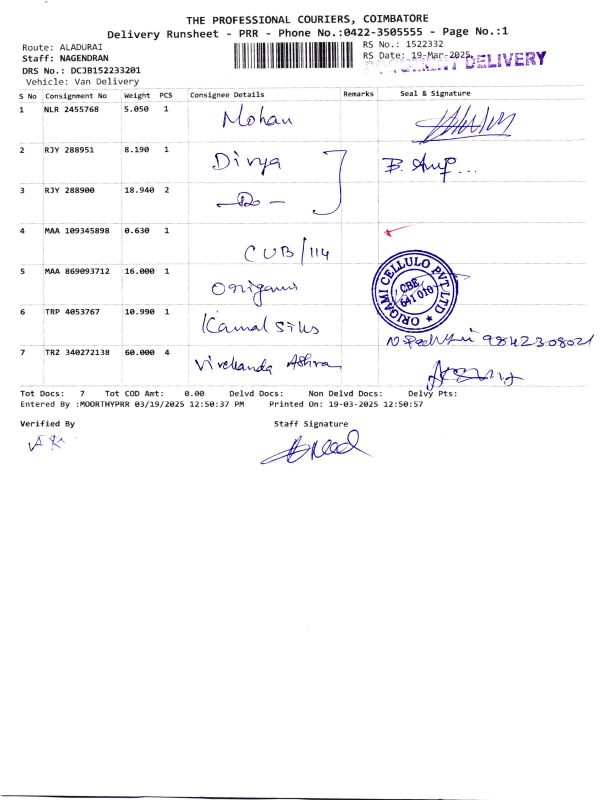 THE PROFESSIONAL COURIERS, COIMBATORE
Delivery Runsheet - PRR - Phone No.:0422-3505555 - Page No.:1
Route: ALADURAI
RS No.: 1522332
Staff: NAGENDRAN
RS Date: 19-Mar-2025
DELIVERY
DRS No.: DCJB152233201
Vehicle: Van Delivery
S No Consignment No Weight PCS Consignee Details Remarks Seal & Signature
1 NLR 2455768 5.050 1 Mohan
2 RJY 288951 8.190 1 Divya
3 RJY 288900 18.940 2 -Do-
4 MAA 109345898 0.630 1 CUB/114
5 MAA 869093712 16.000 1 Origami
ORIGAMI CELLULO PVT LTD
CBE
641 010
6 TRP 4053767 10.990 1 Kamal Silks
9842308021
7 TRZ 340272138 60.000 4
Tot Docs: 7 Tot COD Amt: 0.00 Delvd Docs: Non Delvd Docs: Delvy Pts:
Entered By :MOORTHYPRR 03/19/2025 12:50:37 PM Printed On: 19-03-2025 12:50:57
Verified By Staff Signature